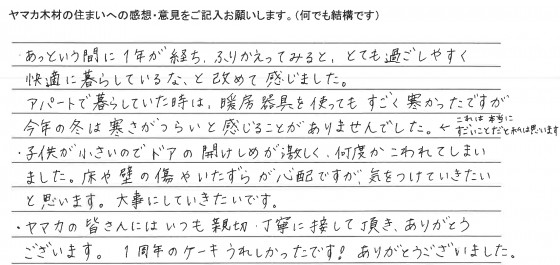 ヤマカ木材の住まいへの感想・意見をご記入お願いします。(何でも結構です)
・あっという間に1年が経ち、ふりかえってみると、とても過ごしやすく
快適に暮らしているな、と改めて感じました。
アパートで暮らしていた時は、暖房器具を使ってもすごく寒かったですが
今年の冬は寒さがつらいと感じることがありませんでした。←これは本当に
すごいことだと私は思います
・子供が小さいのでドアの開けしめが激しく、何度かこわれてしまい
ました。床や壁の傷やいたずらが心配ですが、気をつけていきたい
と思います。大事にしていきたいです。
・ヤマカの皆さんにはいつも親切・丁寧に接して頂き、ありがとう
ございます。1周年のケーキうれしかったです!ありがとうございました。